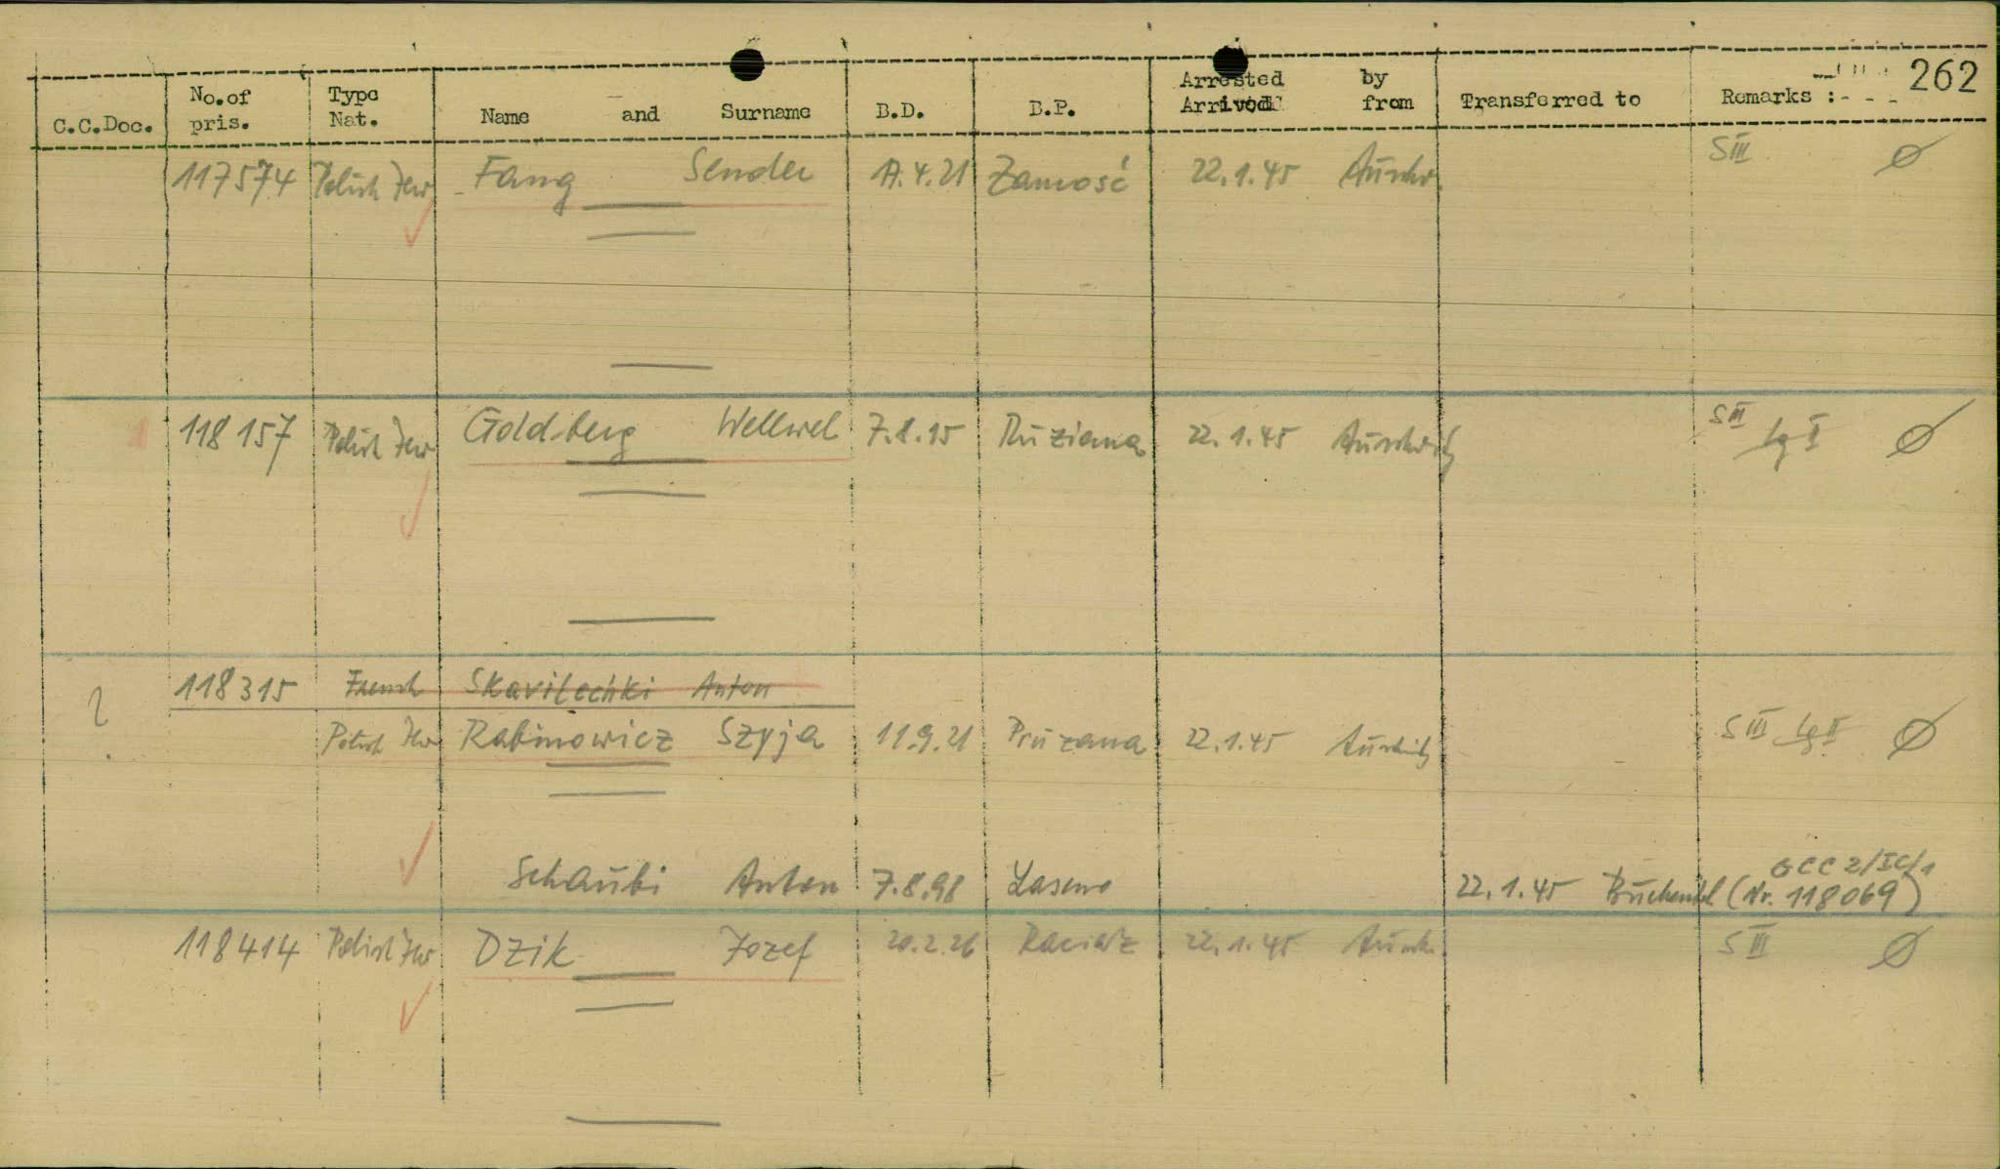 262
C.C.Doc. No.of pris. Type Nat. Name and Surname B.D. B.P. Arrested by Arrived from Transferred to Remarks :- - -
117574 Polish Jew Fang Sender 17.4.21 Zamość 22.1.45 Auschw. S III
118157 Polish Jew Goldberg Wellwel 7.8.15 22.1.45 Auschwitz S III lg II
118315 French Anton
2 Polish Jew Rabinowicz Szyja 11.9.21 Pruzana 22.1.45 Auschwitz S III lg II
Schaubi Anton 7.8.98 22.1.45 Buchenwl (Nr. 118069)
GCC 2/IC/1
118414 Polish Jew Dzik Jozef 20.2.26 22.1.45 Ausch. S III